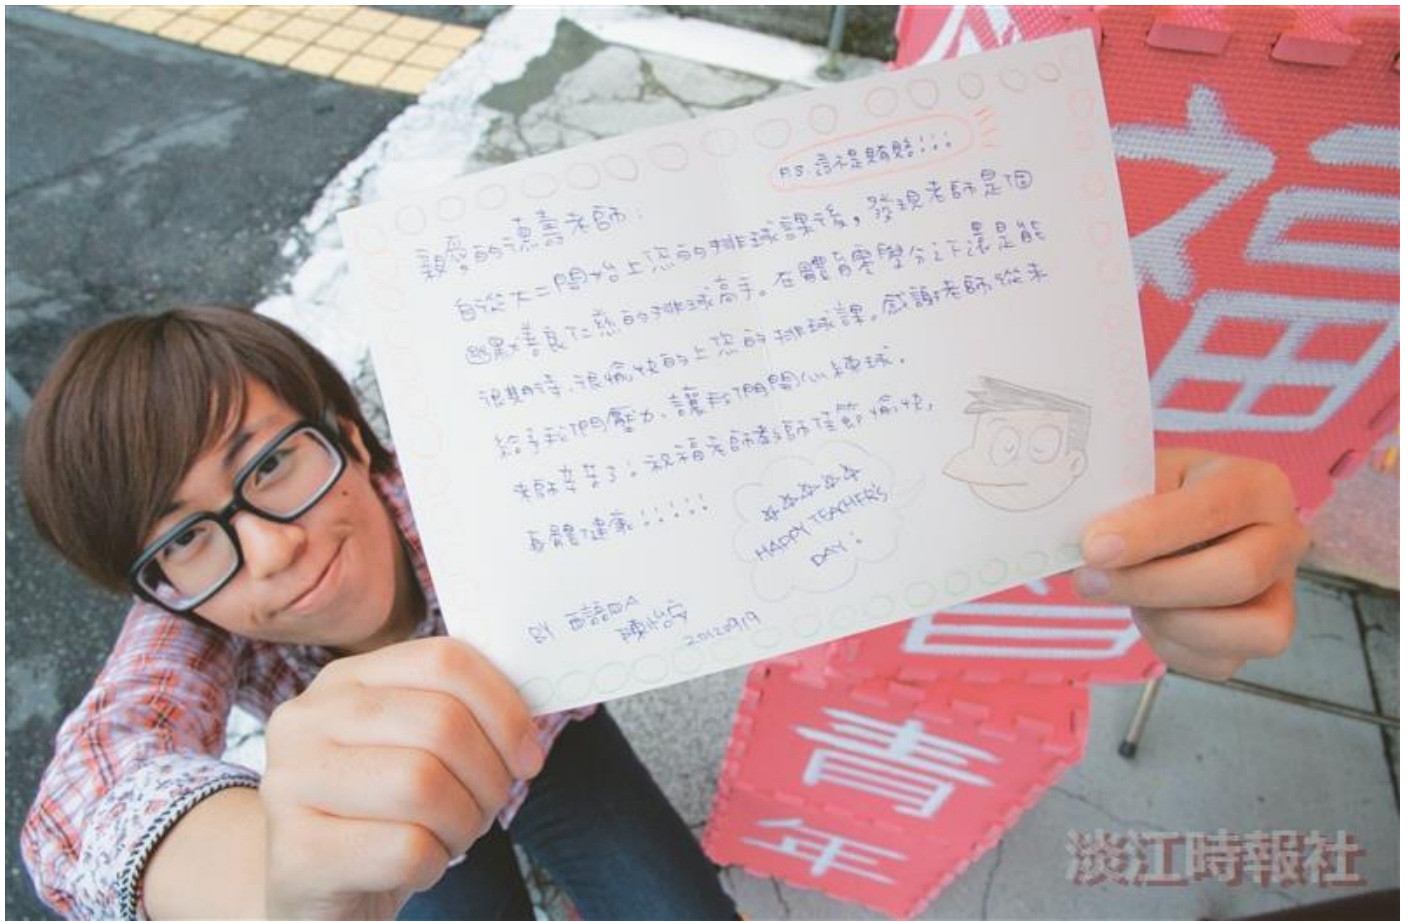 P.S. 這不是賄賂!!!
親愛的漢壽老師:
自從大二開始上您的排球課後,發現老師是個
幽默善良仁慈的排球高手。在體育零學分之下還是能
很期待、很愉快的上您的排球課。感謝老師從來
給予我們壓力、讓我們開心練球。
老師辛苦了。祝福老師教師佳節愉快,
身體健康!!!!!
HAPPY TEACHER'S
DAY:
BY 西語四A
陳怡安
20120919
福
青
年
淡江時報社